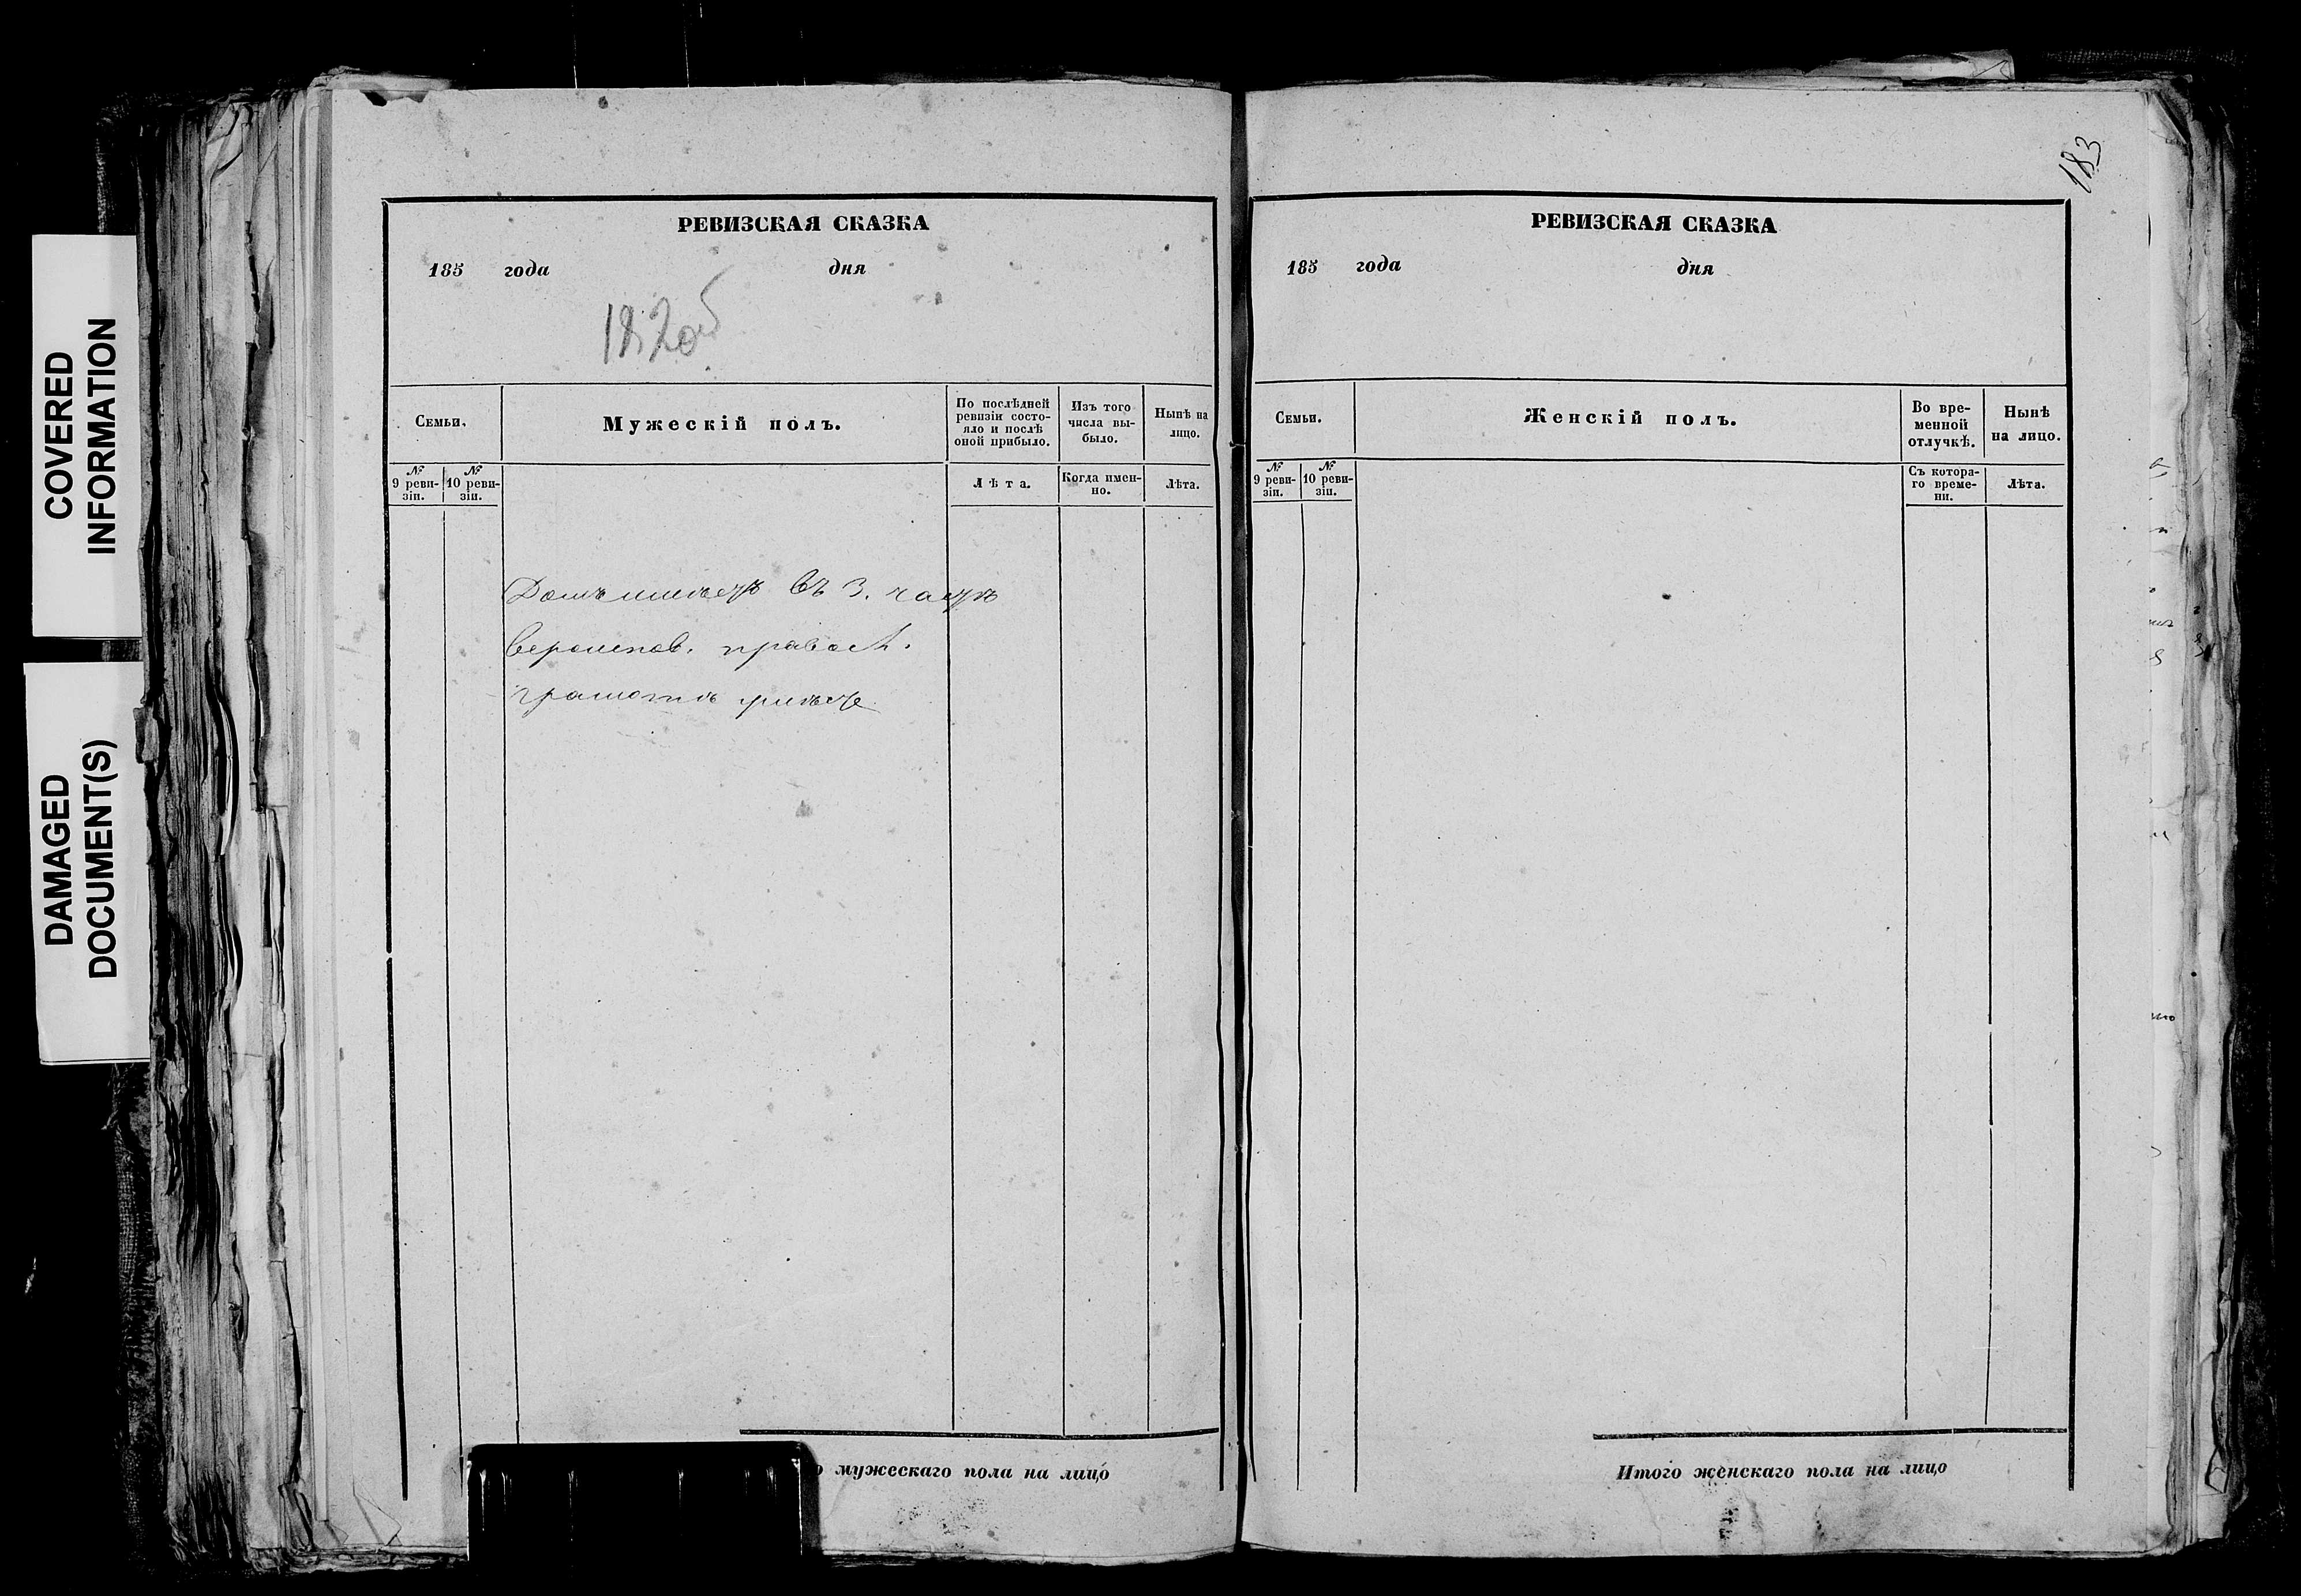 COVERED
INFORMATION
DAMAGED
DOCUMENT(S)
РЕВИЗСКАЯ СКАЗКА
185 года дня
182об
Семьи.
Мужескій полъ.
По послѣдней
ревизіи состо-
яло и послѣ
оной прибыло.
Изъ того
числа вы-
было.
Нынѣ на
лицо.
№
9 реви-
зіи.
№
10 реви-
зіи.
Лѣта.
Когда имен-
но.
Лѣта.
Домъ имѣетъ въ 3. части
вероиспов. правосл.
грамотѣ умѣетъ
о мужескаго пола на лицо
183
РЕВИЗСКАЯ СКАЗКА
185 года дня
Семьи.
Женскій полъ.
Во вре-
менной
отлучкѣ.
Нынѣ
на лицо.
№
9 реви-
зіи.
№
10 реви-
зіи.
Съ котора-
го време-
ни.
Лѣта.
Итого женскаго пола на лицо